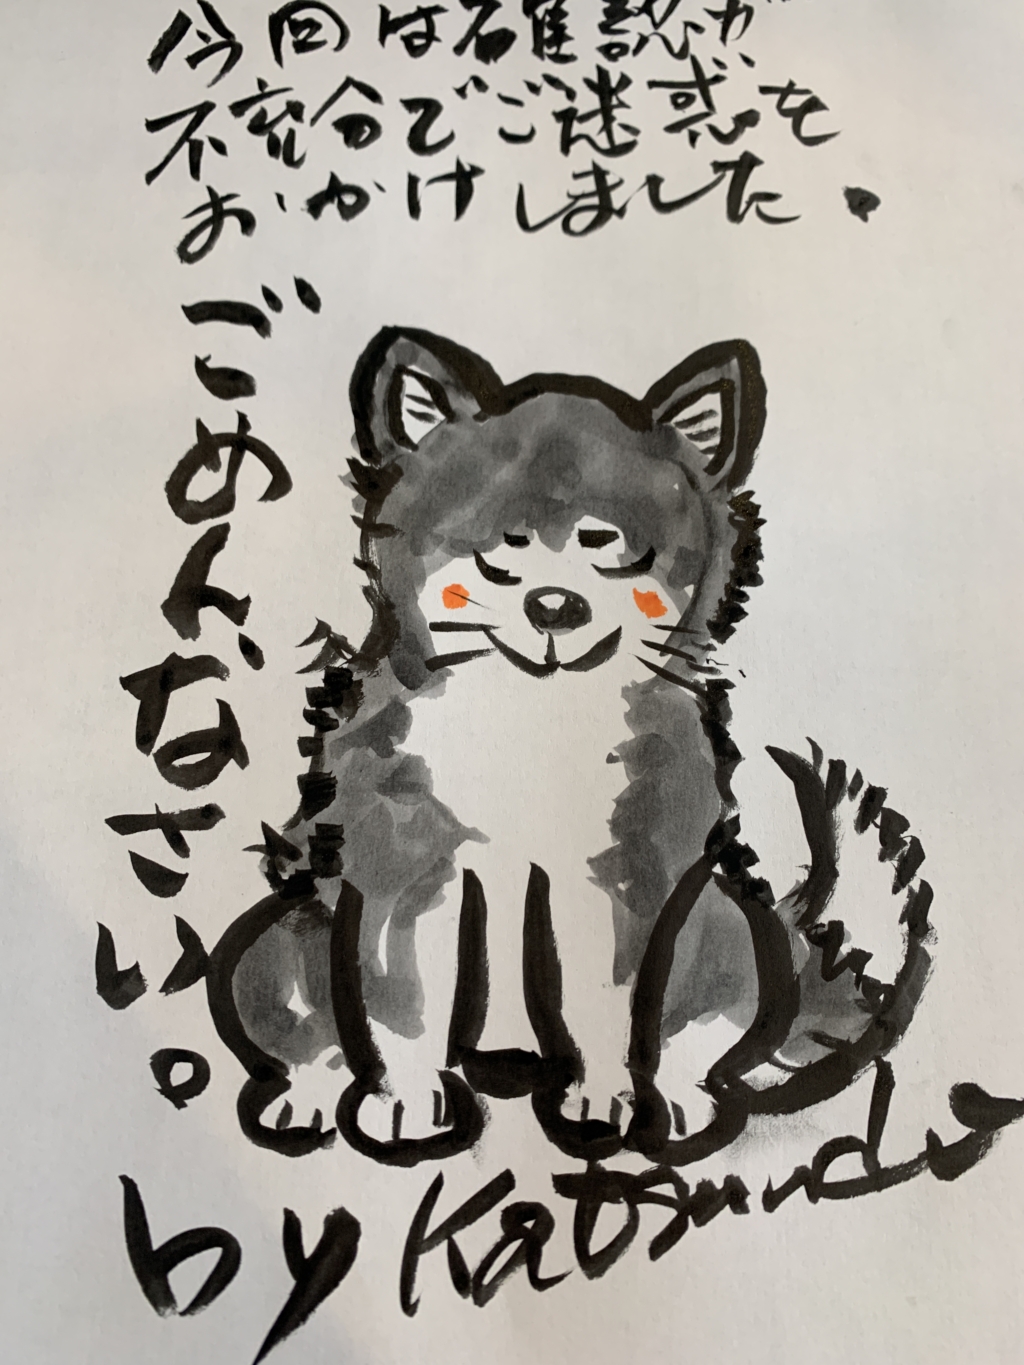 今回は確認が
不充分でご迷惑を
おかけしました。
ごめんなさい。
by Katsundo